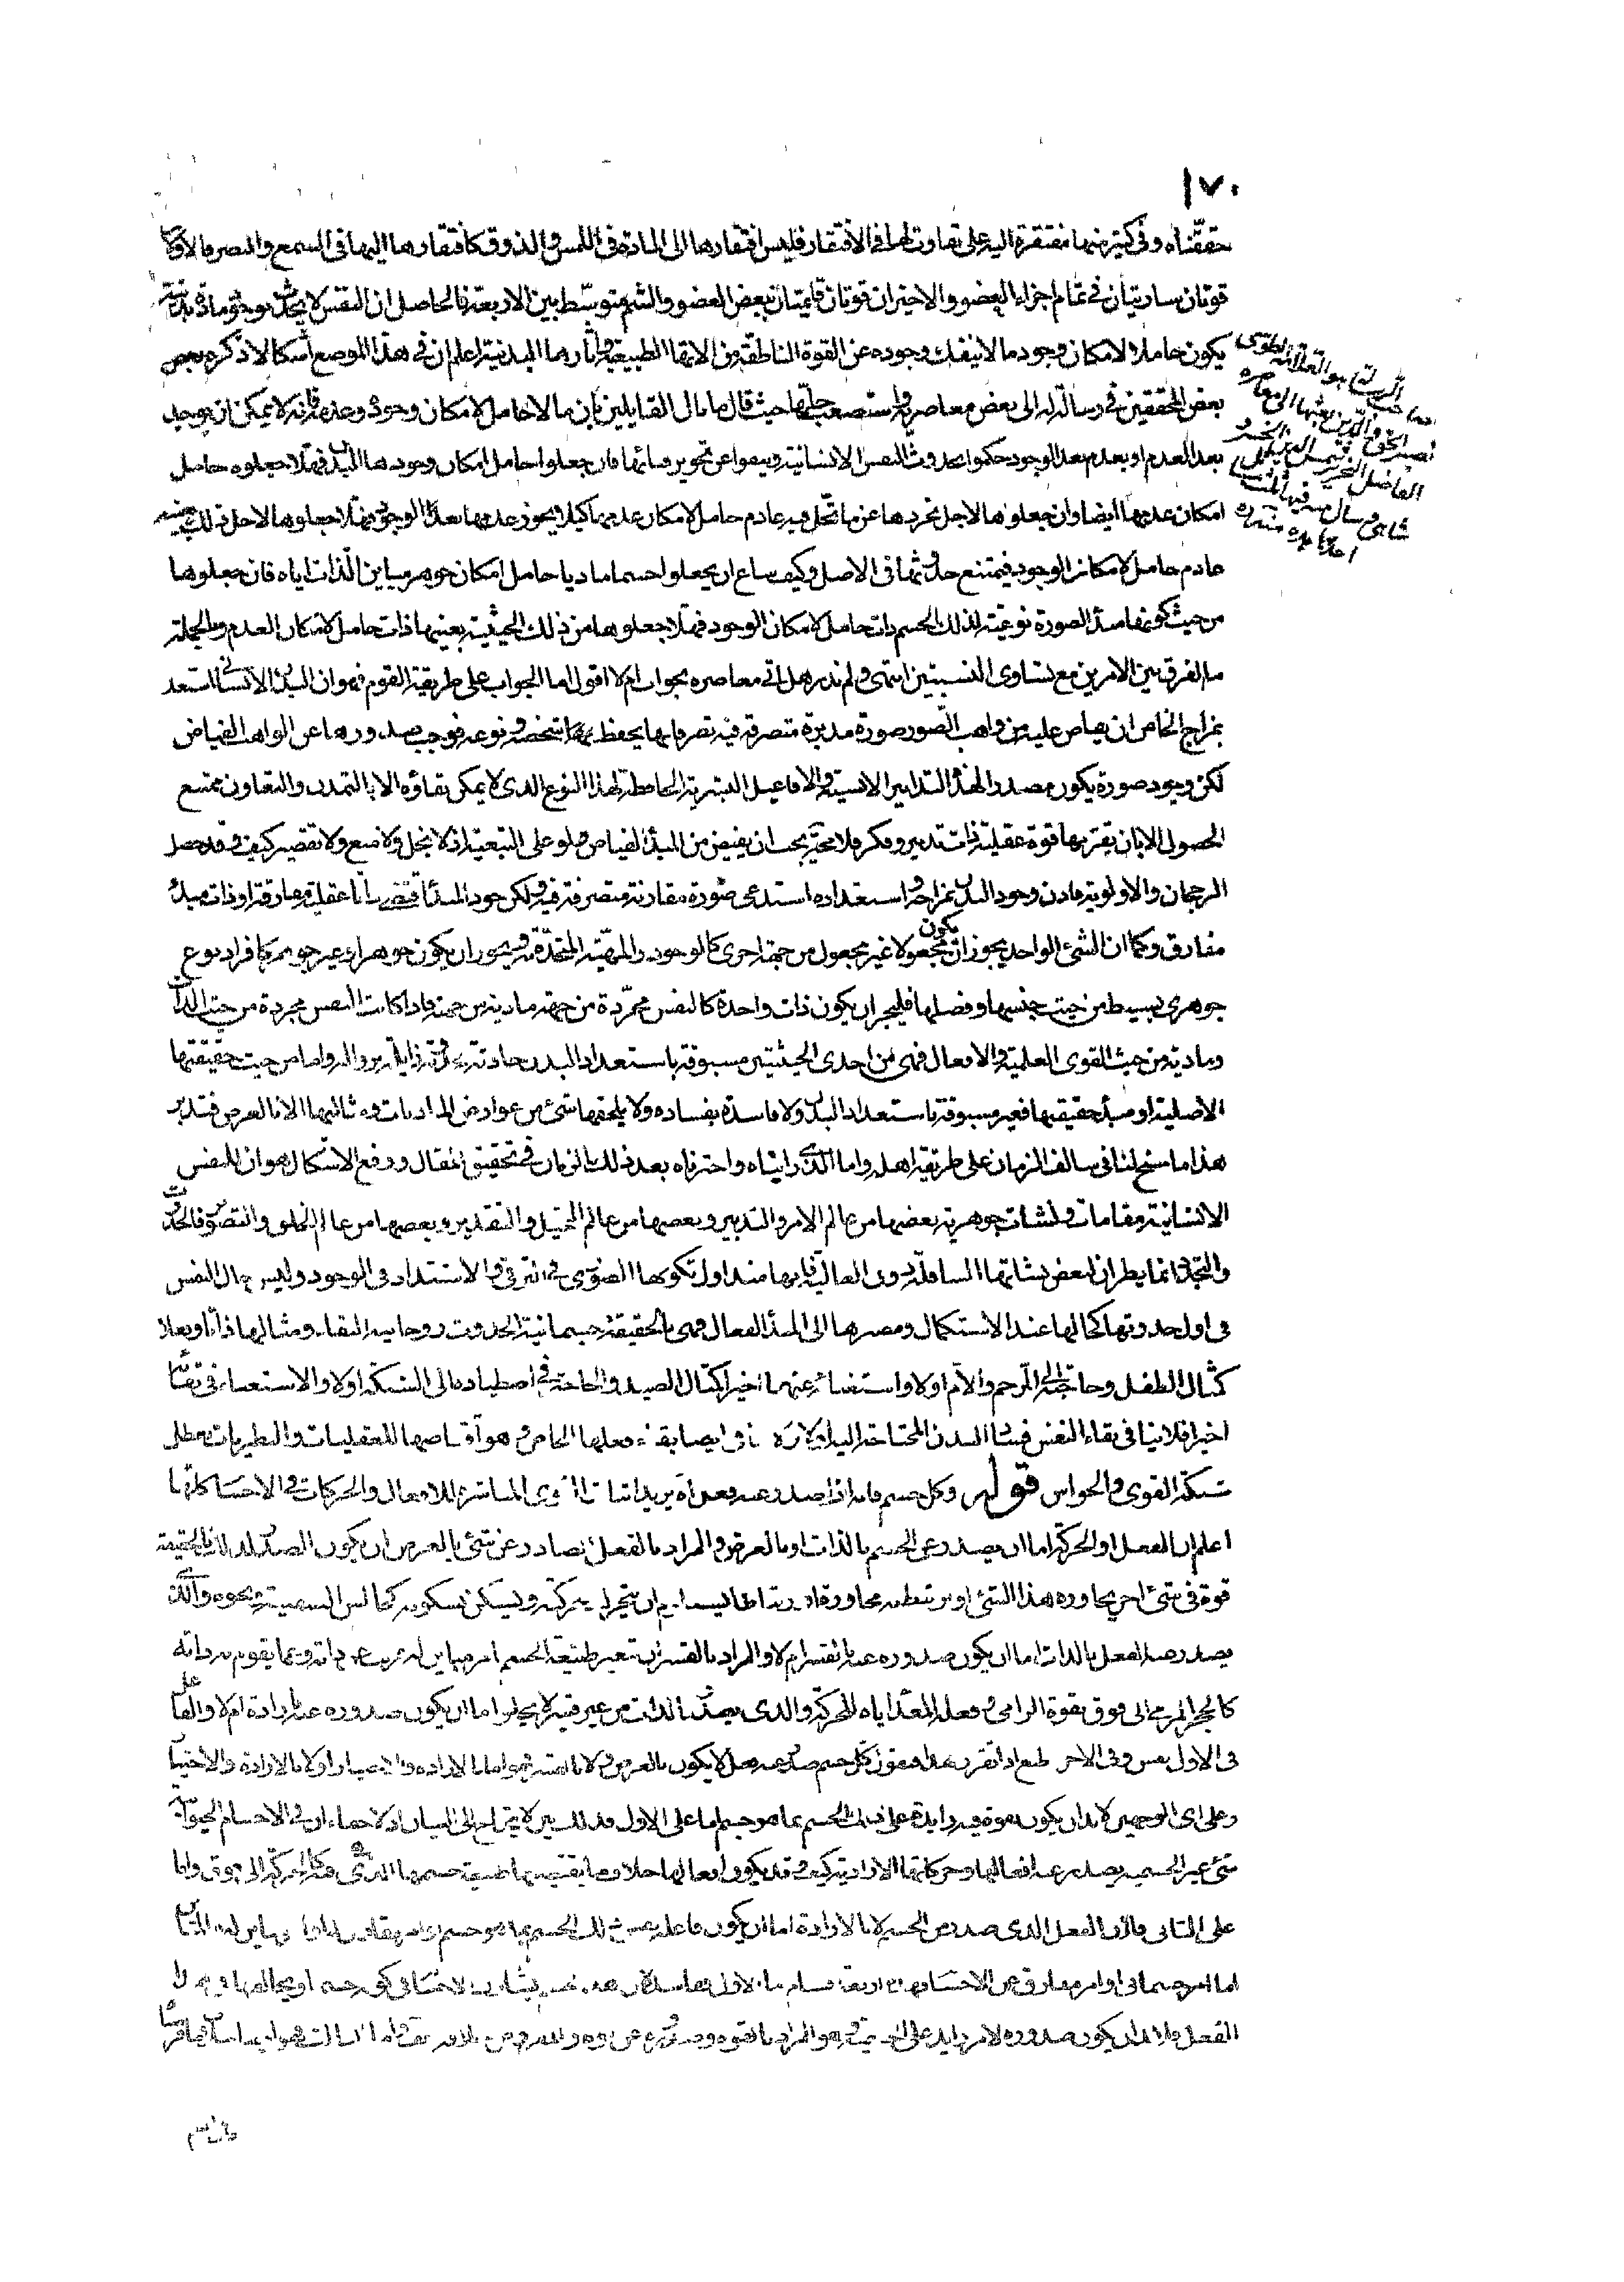 ١٧٠
حققناه وفى كثير منها مفتقرة اليه على تفاوت لها فى الافتقار فليس افتقارها الى المادة فى اللمس والذوق كافتقارها اليها فى السمع والبصر فالاولان
قوتان ساريتان فى تمام اجزاء العضو والاخيران قوتان قايمتان ببعض العضو والشم متوسط بين الاربعة فالحاصل ان النفس لا يحدث بحدوث مادة بدنية
يكون حاملا لامكان وجود ما لا ينفك وجوده عن القوة الناطقة من الاتها الطبيعية واثارها البدنية اعلم ان فى هذا الموضع اشكالا ذكره بعض
بعض المحققين فى رسالة له الى بعض معاصريه واستصعب حلها حيث قال ما بال القايلين بان ما لا حامل لامكان وجوده وعدمه فانه لا يمكن ان يوجد
بعد العدم او يعدم بعد الوجود حكموا بحدوث النفس الانسانية ومنعوا عن تجويز فنائها فان جعلوا حامل امكان وجودها البدن فهلا جعلوه حامل
امكان عدمها ايضا وان جعلوها لاجل تجردها عن ما تحل فيه عادم حامل لامكان عدمها كيلا يجوز عدمها بعد الوجود فهلا جعلوها لاجل ذلك بعينه
عادم حامل لامكان الوجود فيمتنع حدوثها فى الاصل وكيف ساغ ان يجعلوا جسما ماديا حامل امكان جوهر مباين الذات اياه فان جعلوها
من حيث كونها مبدأ لصورة نوعية لذلك الجسم ذات حامل لامكان الوجود فهلا جعلوها من ذلك الحيثية بعينها ذات حامل لامكان العدم وبالجملة
ما الفرق بين الامرين مع تساوى النسبتين انتهى ولم ندر هل اتى معاصره بجواب ام لا اقول اما الجواب على طريقة القوم فهو ان البدن الانسانى استعد
بمزاج الخاص ان يفاض عليه من واهب الصور صورة مدبرة متصرفة فيه تصرفا يحفظ بها شخصه ونوعه فوجب صدورها عن الواهب الفياض
لكن وجود صورة يكون مصدرا لهذه التدابير الانسية والافاعيل البشرية الحافظة لهذا النوع الذى لا يمكن بقاؤه الا بالتمدن والتعاون ممتنع
الحصول الا بان يقترنها قوة عقلية ذات تدبير وفكر فلا محة يجب ان يفيض من المبدأ الفياض ولو على التبعية اذ لا بخل ولا منع ولا تقصير كيف وقد حصل
الرجحان والاولوية فاذن وجود البدن بمزاجه واستعداده استدعى صورة مقارنة متصرفة فيه ولكن جود المبدأ اقتضى ذاتا عقلية مفارقة او ذات مبدأ
مفارق وكما ان الشئ الواحد يجوز ان يكون مجعولا غير مجعول من جهة اخرى كالوجود والمهية المتحدة به ويجوز ان يكون جوهرا وغير جوهر كافراد نوع
جوهرى بسيط من حيث جنسها وفصلها فليجز ان يكون ذات واحدة كالنفس مجردة من جهة مادية من جهة فاذا كانت النفس مجردة من حيث الذات
ومادية من حيث القوى العلمية والافعال فهى من احدى الحيثيتين مسبوقة باستعداد البدن حادثة بحدوثه زايلة بزواله واما من حيث حقيقتها
الاصلية او مبدأ حقيقتها فغير مسبوقة باستعداد البدن ولا فاسدة بفساده ولا يلحقها شئ من عوارض الماديات ومثالبها الا بالعرض فتدبر
هذا ما سنح لنا فى سالف الزمان على طريقة اهله واما الذى رايناه واخترناه بعد ذلك بالزمان فى تحقيق المقال ودفع الاشكال هو ان للنفس
الانسانية مقامات ونشات جوهرية بعضها من عالم الامر والتدبير وبعضها من عالم التخيل والتقدير وبعضها من عالم الخلق والتصوير فالحدوث
والتجدد انما يطران لبعض نشاتها السافلة دون العالية فانها منذ اول تكونها الصورى فى الترقى والاستعداد فى الوجود وليس حال النفس
فى اول حدوثها كحالها عند الاستكمال ومصيرها الى المبدأ الفعال فهى بالحقيقة جسمانية الحدوث روحانية البقاء ومثالها ذاتا وفعلا
كمثال الطفل وحاجته الى الرحم والام اولا واستغنائه عنهما اخيرا كمثال الصيد والحاجة فى اصطياده الى الشبكة اولا والاستغناء فى بقائه
اخيرا فلا ينافى بقاء النفس فساد البدن المحتاجة اليه اولا وبقاء فعلها الخاص وهو اقتناصها للعقليات والنظريات بعطل
شبكة القوى والحواس قوله وكل جسم فانه اذا صدر عنه فعل اه يريد اثبات القوى المباشرة للافعال والحركات فى الاجسام كلها
اعلم ان الفعل او الحركة اما ان يصدر عن الجسم بالذات او بالعرض والمراد بالفعل الصادر عن شئ بالعرض ان يكون الصدور له بالحقيقة
قوة فى شئ اخر يجاوره هذا الشئ او يرتبط به مجاورة ان يتحرك بحركته ويسكن بسكونه كجالس السفينة ونحوه والذى
يصدر عنه الفعل بالذات اما ان يكون صدوره عنه بالقسر ام لا والمراد بالقسر ان يتغير طبيعة الجسم امر مباين له عن ذاته وعما يقوم به ذاته
كالحجر المرمى الى فوق بقوة الرامى وفعله المعد اياه للحركة والذى يصدر بالذات من غير قسر لا يخلو اما ان يكون صدوره عنه بارادة ام لا والفاعل
فى الاول نفس وفى الاخر طبع اذا تقرر هذا فنقول كل جسم صدر عنه فعل لا يكون بالعرض ولا بالقسر فهو اما بالارادة والاختيار او لا بالارادة والاختيار
وعلى اى الوجهين لا بد ان يكون بقوة فيه زايدة على ذلك الجسم بما هو جسم اما على الاول فذلك بين لا يحتاج الى البيان اذ لا خفاء ان فى الاجسام الحيوانية
شئ غير الجسمية يصدر عنه افعالها وحركاتها الارادية كيف وقد يكون افعالها خلاف ما يقتضيها طبيعة جسمها كالحركة الى فوق واما
على الثانى فلان الفعل الذى صدر من الجسم لا بالارادة اما ان يكون فاعله نفس ذلك الجسم بما هو جسم او امر يقارن له او مباين له المباين
اما امر جسمانى او امر مفارق عن الاجسام فهذه اربعة اقسام الاول
الفعل ولا بد ان يكون صدوره لامر زايد على الجسمية وهو المراد بالقوة